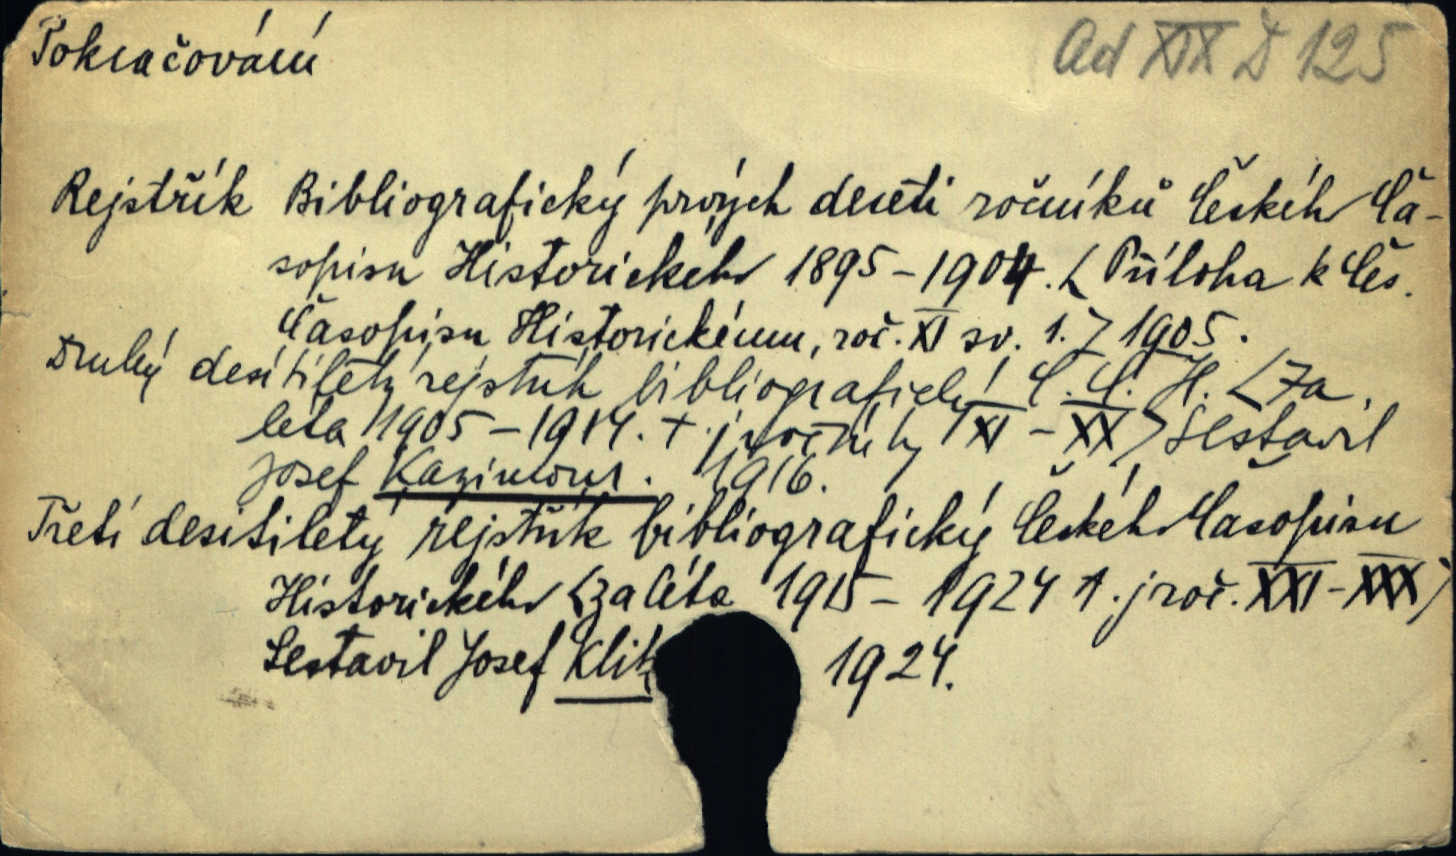 Pokračování
Ad XIX D 125
Rejstřík Bibliografický prvých deseti ročníků Českého Ča-
sopisu Historického 1895-1904. < Příloha k Čes.
Časopisu Historickému, roč. XI sv. 1. > 1905.
Druhý desítiletý rejstřík bibliografický Č. Č. H. < Za
léta 1905-1914. t. j. ročníky XI - XX > Sestavil
Josef Kazimour. 1916.
Třetí desítiletý rejstřík bibliografický Českého Časopisu
Historického < za léta 1915-1924 t. j. roč. XXI - XXX >
Sestavil Josef Klik 1924.